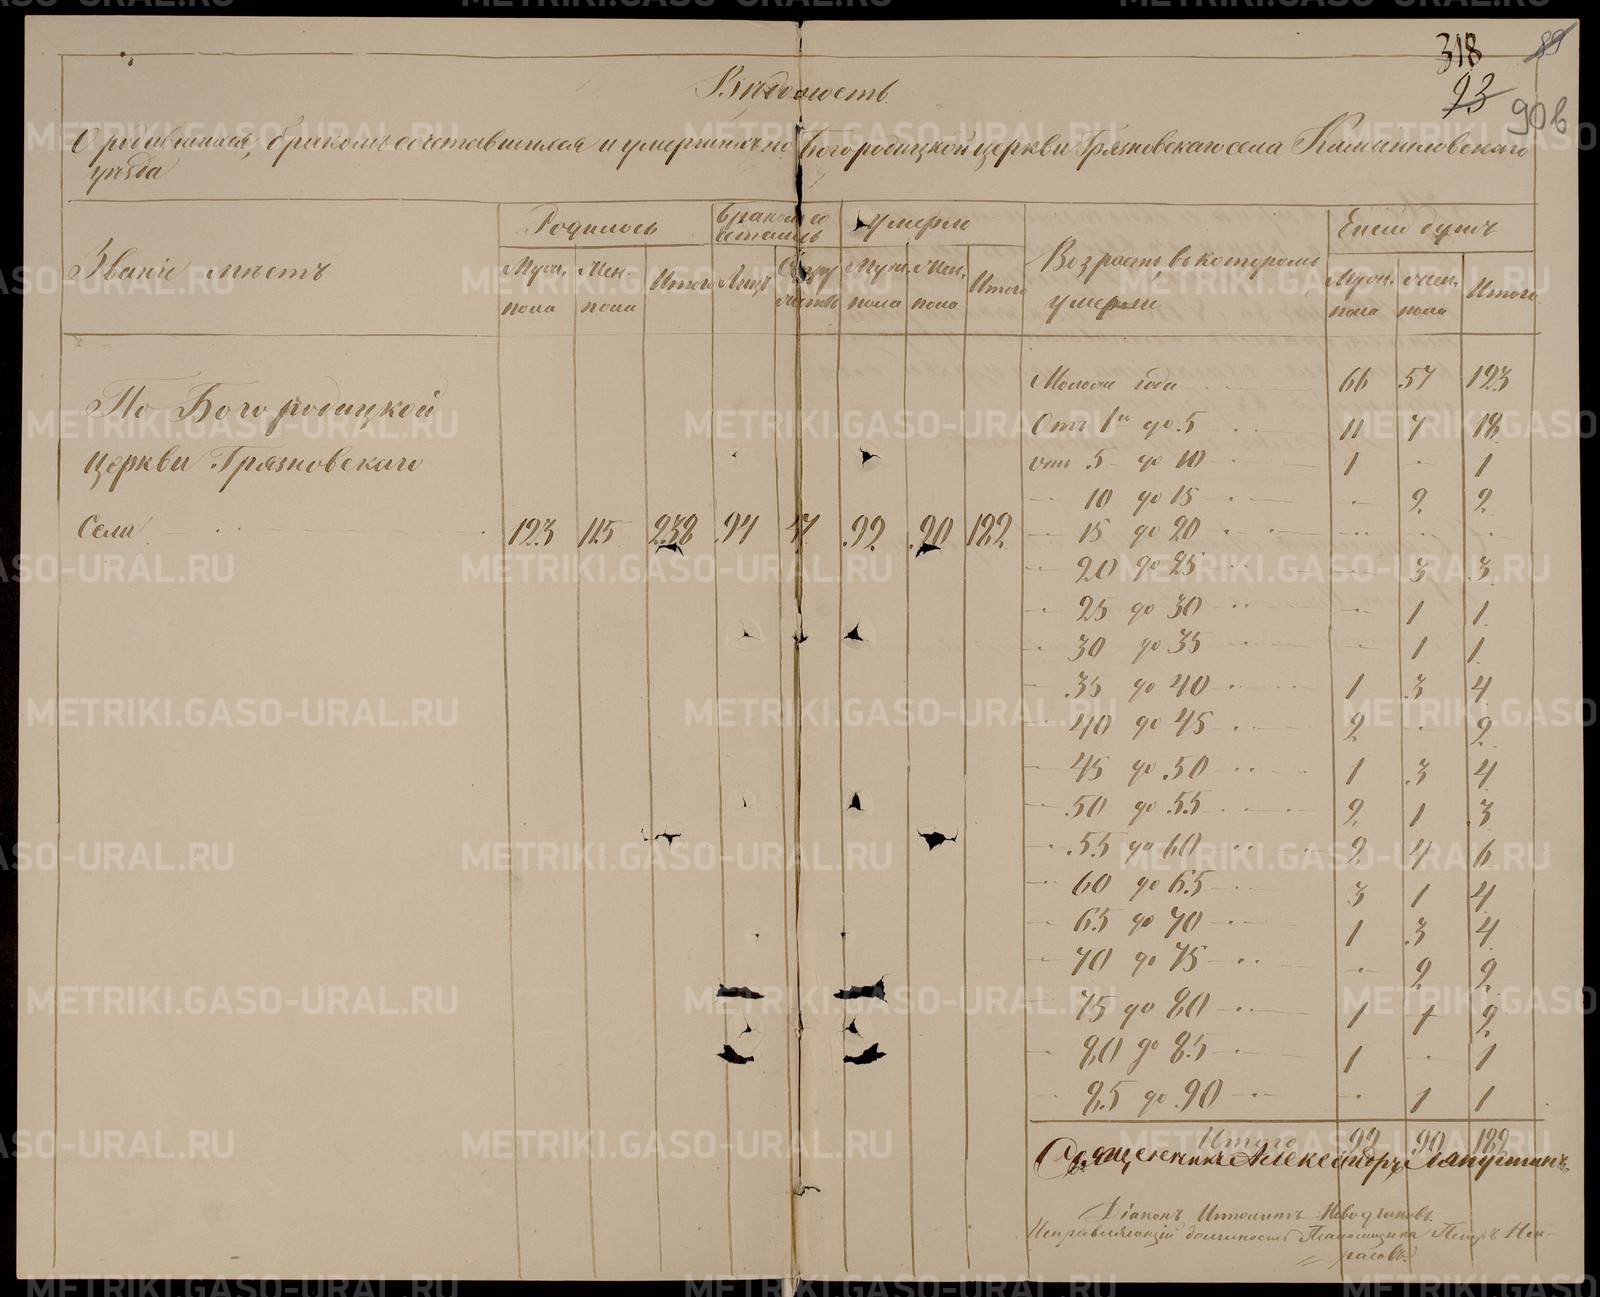 318 89
93
90 в
Вѣдомость
О родившихся, бракомъ сочетавшихся и умершихъ по Богородицкой церкви Грязновскаго села Камышловскаго
уѣзда
Званіе мѣстъ
Родилось
Бракомъ со
четались
Умерло
Возрастъ, въ которомъ
умерли
Сколько душъ
Муж. пола
Жен. пола
Итого
Лицъ
Супру
жествъ
Муж. пола
Жен. пола
Итого
Муж. пола
Жен. пола
Итого
По Богородицкой
церкви Грязновскаго
Села 123 115 238 94 47 92 90 182
Моложе года 66 57 123
Отъ 1го до 5 11 7 18
отъ 5 до 10 1 - 1
10 до 15 - 2 2
15 до 20
20 до 25 - 3 3
25 до 30 - 1 1
30 до 35 - 1 1
35 до 40 1 3 4
40 до 45 2 - 2
45 до 50 1 3 4
50 до 55 2 1 3
55 до 60 2 4 6
60 до 65 3 1 4
65 до 70 1 3 4
70 до 75 - 2 2
75 до 80 1 1 2
80 до 85 1 - 1
85 до 90 - 1 1
Итого 92 90 182
Священникъ Александръ Лапустинъ
Діаконъ Ипполитъ
Исправляющій должность Псаломщика Петръ Нек-
расовъ
METRIKI.GASO-URAL.RU